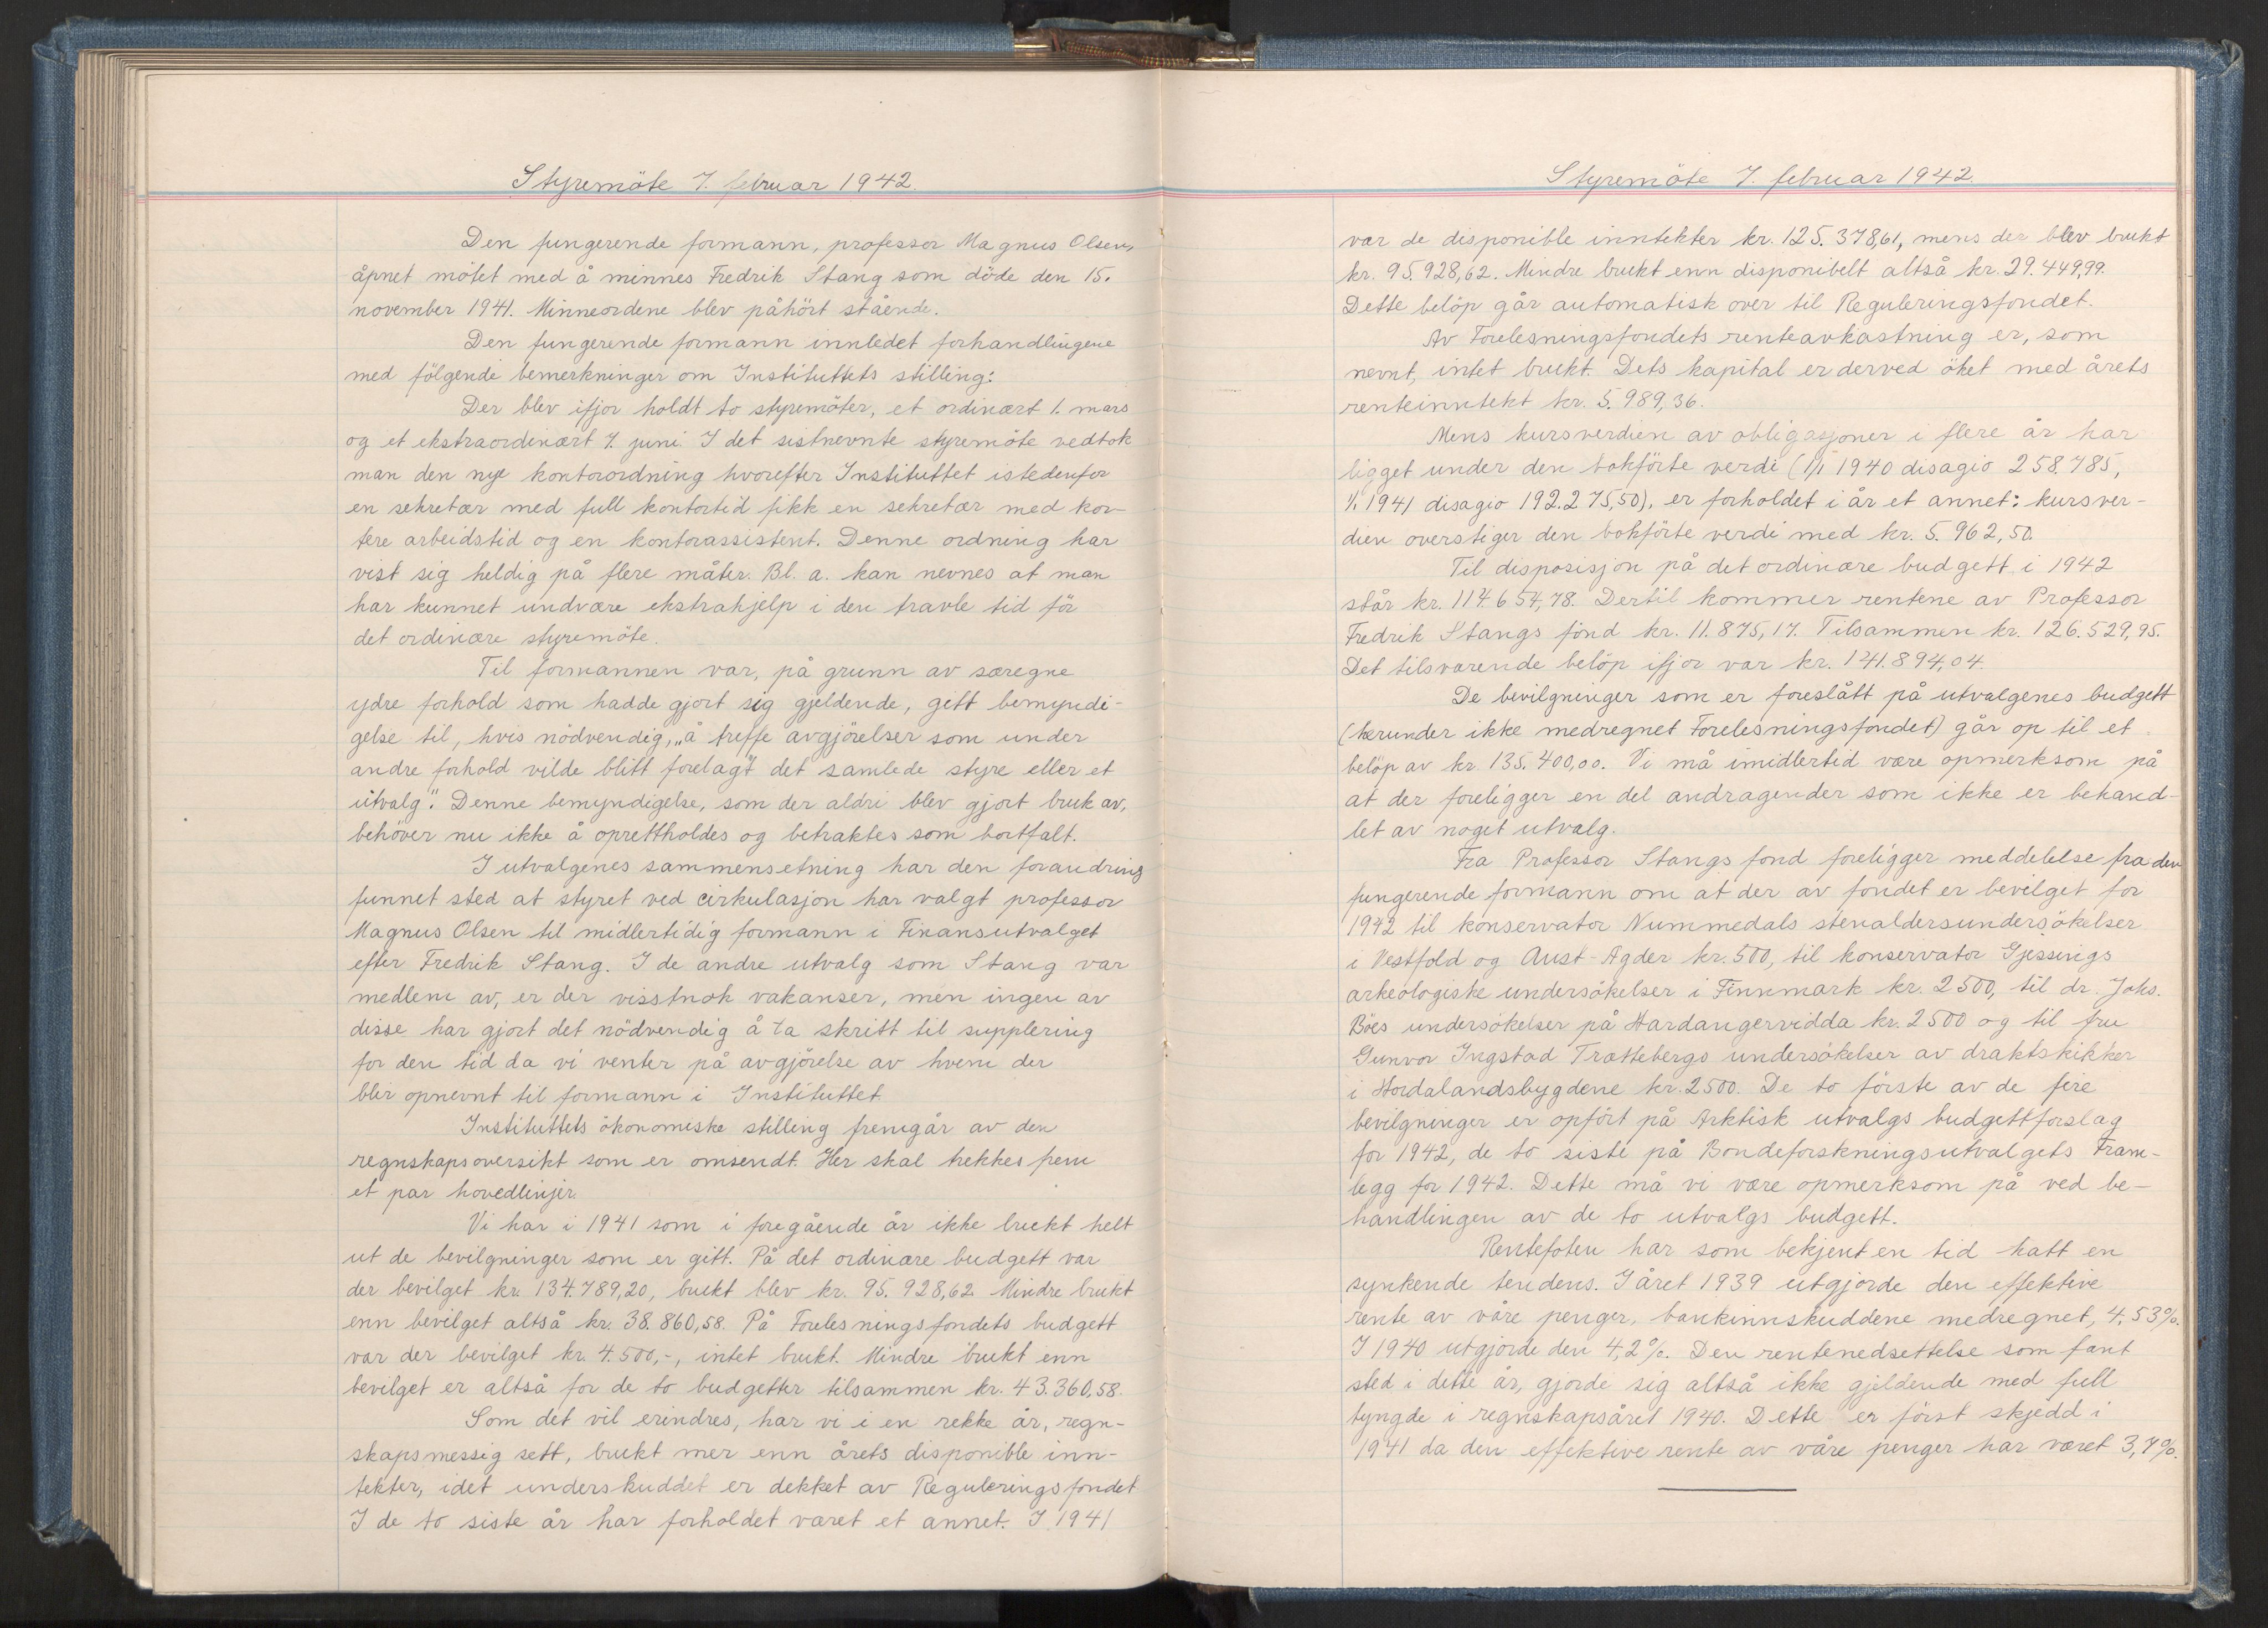 Styremöte 7. februar 1942.
Den fungerende formann, professor Magnus Olsen,
åpnet mötet med å minnes Fredrik Stang som döde den 15.
november 1941. Minneordene blev påhört stående.
Den fungerende formann innledet forhandlingene
med fölgende bemerkninger om Instituttets stilling:
Der blev ifjor holdt to styremöter, et ordinært 1. mars
og et ekstraordinært 7. juni. I det sistnevnte styremöte vedtok
man den nye kontorordning hvorefter Instituttet istedenfor
en sekretær med full kontortid fikk en sekretær med kor-
tere arbeidstid og en kontorassistent. Denne ordning har
vist sig heldig på flere måter. Bl. a. kan nevnes at man
har kunnet undvære ekstrahjelp i den travle tid för
det ordinære styremöte.
Til formannen var, på grunn av særegne
ydre forhold som hadde gjort sig gjeldende, gitt bemyndi-
gelse til, hvis nödvendig, „å treffe avgjörelser som under
andre forhold vilde blitt forelagt det samlede styre eller et
utvalg". Denne bemyndigelse, som der aldri blev gjort bruk av,
behöver nu ikke å oprettholdes og betraktes som bortfalt.
I utvalgenes sammensetning har den forandring
funnet sted at styret ved cirkulasjon har valgt professor
Magnus Olsen til midlertidig formann i Finansutvalget
efter Fredrik Stang. I de andre utvalg som Stang var
medlem av, er der visstnok vakanser, men ingen av
disse har gjort det nödvendig å ta skritt til supplering
for den tid da vi venter på avgjörelse av hvem der
blir opnevnt til formann i Instituttet.
Instituttets ökonomiske stilling fremgår av den
regnskapsoversikt som er omsendt. Her skal trekkes frem
et par hovedlinjer.
Vi har i 1941 som i foregående år ikke brukt helt
ut de bevilgninger som er gitt. På det ordinære budgett var
der bevilget kr. 134.789,20, brukt blev kr. 95.928,62. Mindre brukt
enn bevilget altså kr. 38.860,58. På Forelesningsfondets budgett
var der bevilget kr. 4.500,-, intet brukt. Mindre brukt enn
bevilget er altså for de to budgetter tilsammen kr. 43.360,58.
Som det vil erindres, har vi i en rekke år, regn-
skapsmessig sett, brukt mer enn årets disponible inn-
tekter, idet underskuddet er dekket av Reguleringsfondet
I de to siste år har forholdet været et annet. I 1941
Styremöte 7. februar 1942.
var de disponible inntekter kr. 125.378,61, mens der blev brukt
kr. 95.928,62. Mindre brukt enn disponibelt altså kr. 29.449,99.
Dette belöp går automatisk over til Reguleringsfondet.
Av Forelesningsfondets renteavkastning er, som
nevnt, intet brukt. Dets kapital er derved öket med årets
renteinntekt kr. 5.989,36.
Mens kursverdien av obligasjoner i flere år har
ligget under den bokförte verdi (1/1 1940 disagio 258.785,
1/1 1941 disagio 192.275,50), er forholdet i år et annet: kursver-
dien overstiger den bokförte verdi med kr. 5.962,50.
Til disposisjon på det ordinære budgett i 1942
står kr. 114.654,78. Dertil kommer rentene av Professor
Fredrik Stangs fond kr. 11.875,17. Tilsammen kr. 126.529,95.
Det tilsvarende belöp ifjor var kr. 141.894,04.
De bevilgninger som er foreslått på utvalgenes budgett
(herunder ikke medregnet Forelesningsfondet) går op til et
belöp av kr. 135.400,00. Vi må imidlertid være opmerksom på
at der foreligger en del andragender som ikke er behand-
let av noget utvalg.
Fra Professor Stangs fond foreligger meddelelse fra den
fungerende formann om at der av fondet er bevilget for
1942 til konservator Nummedals stenaldersundersökelser
i Vestfold og Aust-Agder kr. 500, til konservator Gjessings
arkeologiske undersökelser i Finnmark kr. 2500, til dr. Johs.
Böes undersökelser på Hardangervidda kr. 2500 og til fru
Gunvor Ingstad Trættebergs undersökelser av draktskikker
i Hordalandsbygdene kr. 2500. De to förste av de fire
bevilgninger er opfört på Arktisk utvalgs budgettforslag
for 1942, de to siste på Bondeforskningsutvalgets Fram-
legg for 1942. Dette må vi være opmerksom på ved be-
handlingen av de to utvalgs budgett.
Rentefoten har som bekjent en tid hatt en
synkende tendens. I året 1939 utgjorde den effektive
rente av våre penger, bankinnskuddene medregnet, 4,53%.
I 1940 utgjorde den 4,2%. Den rentenedsettelse som fant
sted i dette år, gjorde sig altså ikke gjeldende med full
tyngde i regnskapsåret 1940. Dette er först skjedd i
1941 da den effektive rente av våre penger har været 3,7%.